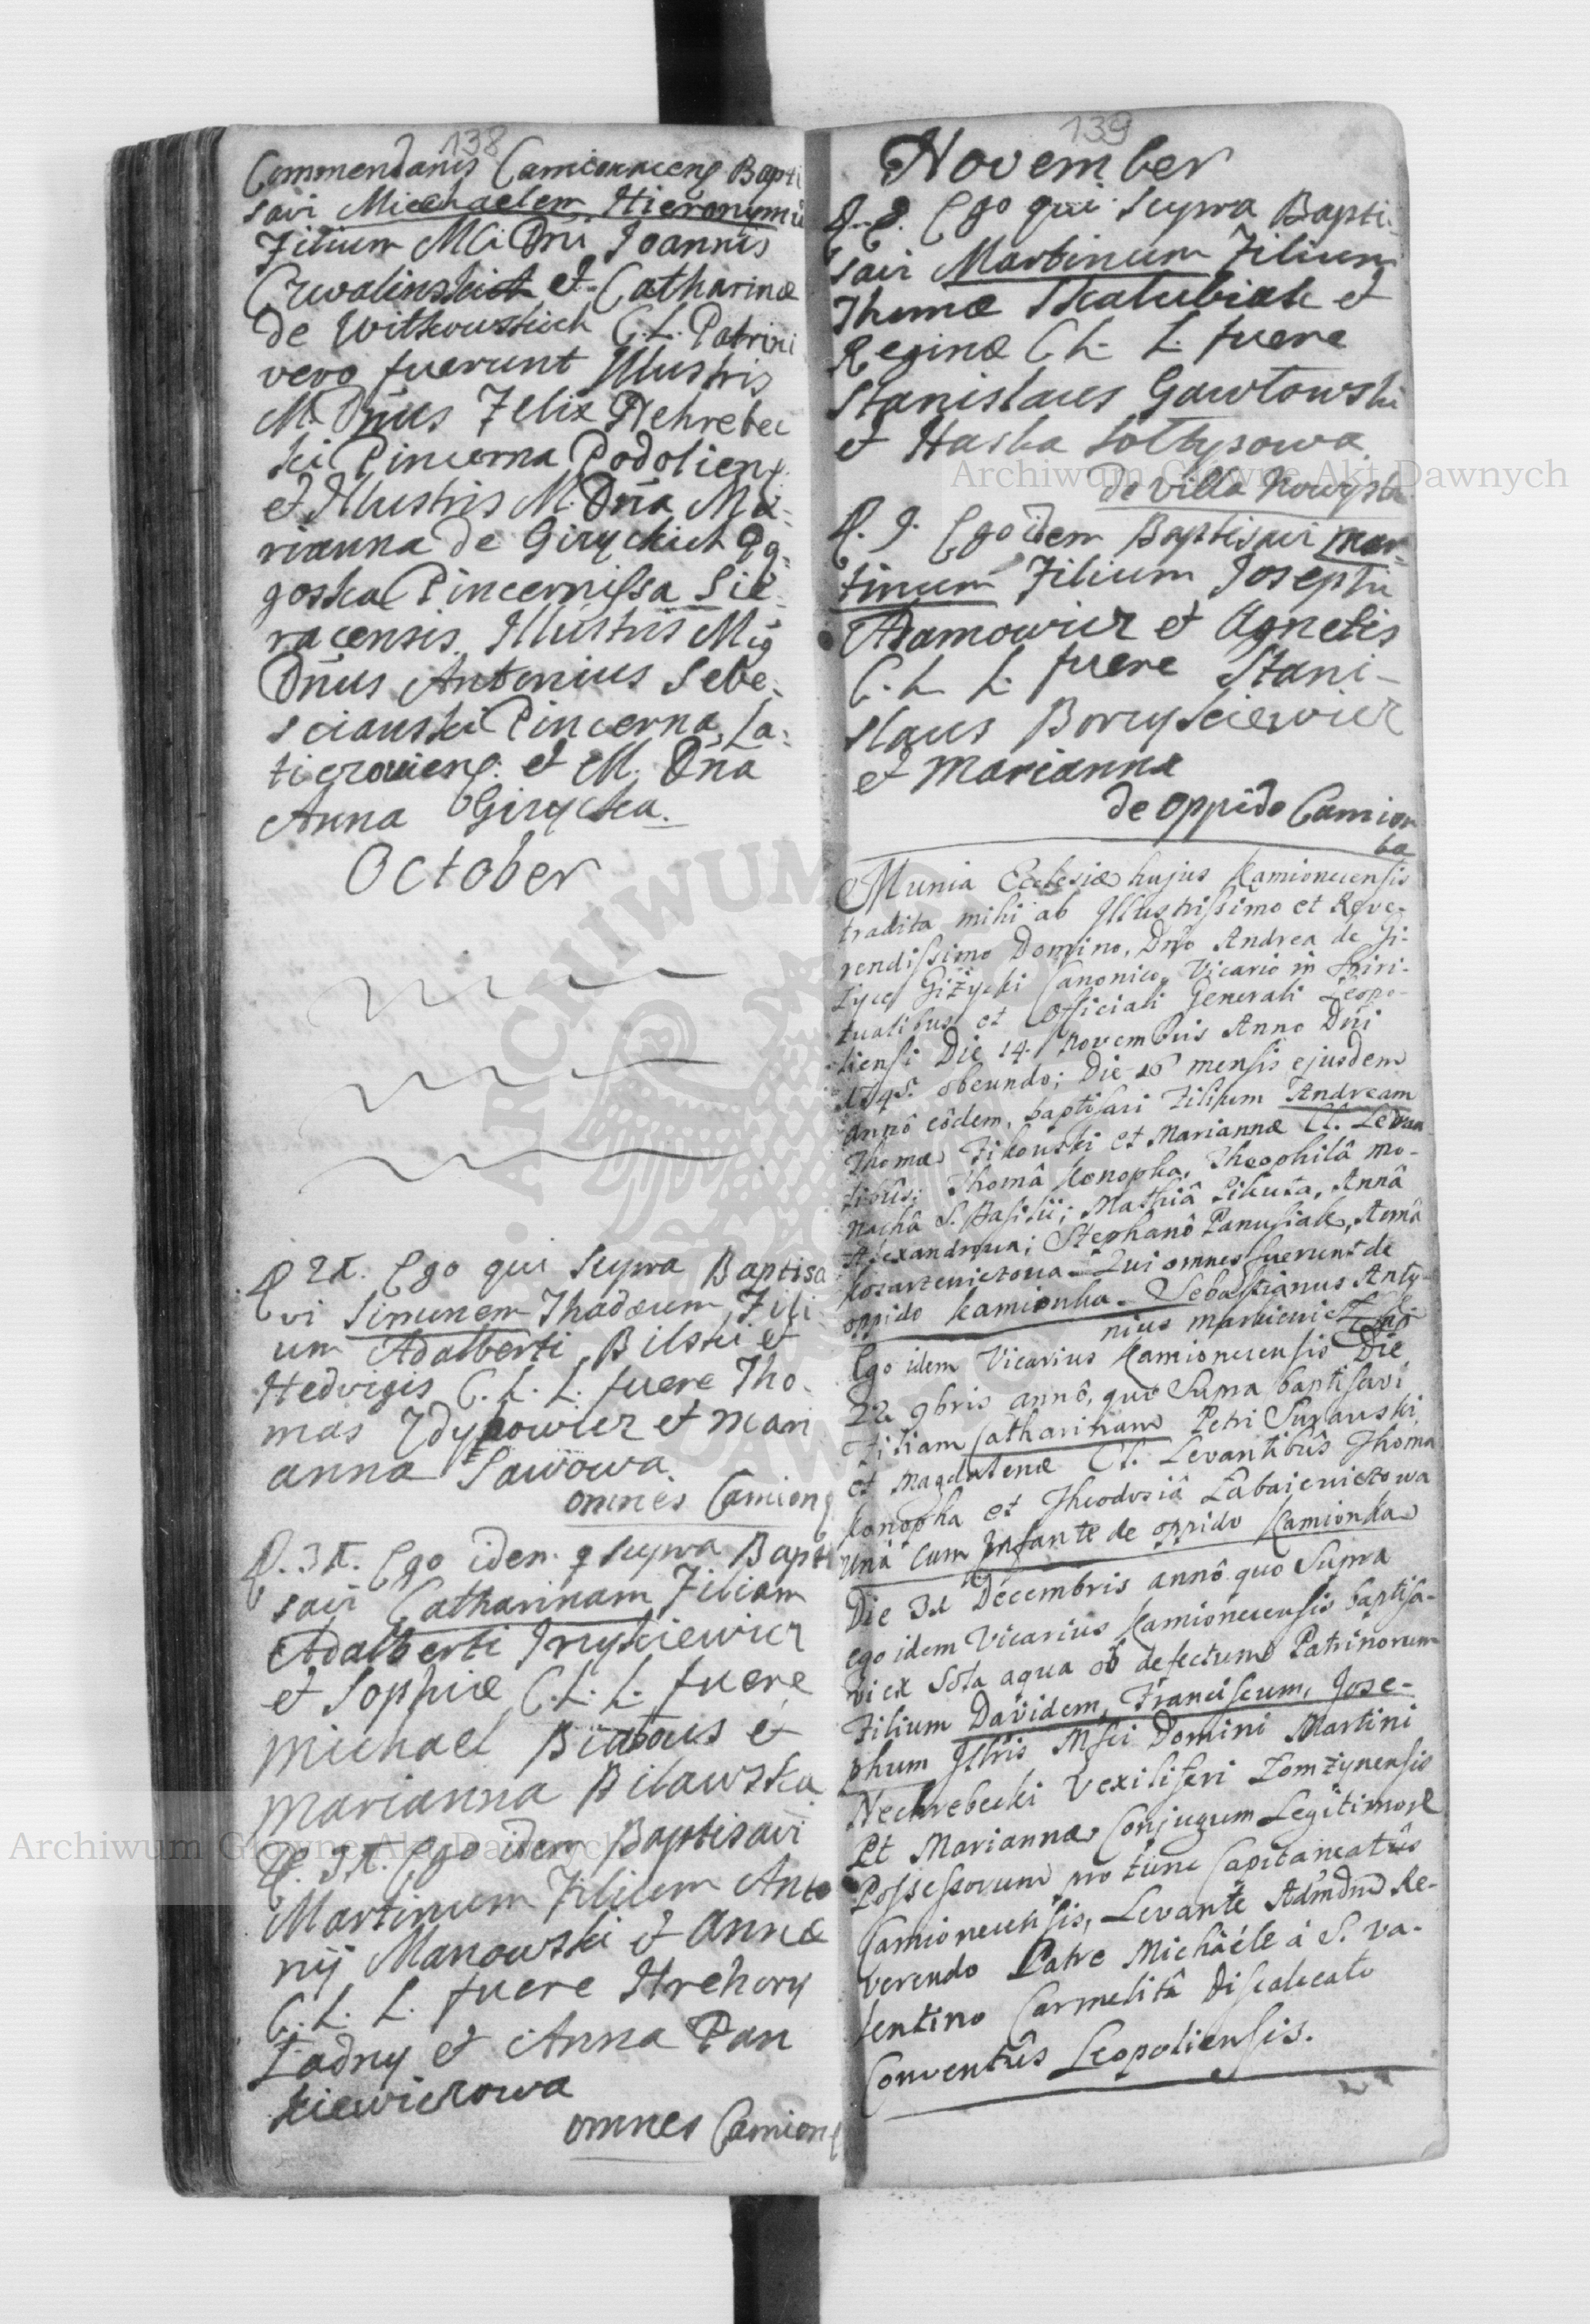 138
Commendarius Camionacens Bapti
savi Miechaelem Hieronymū
Filium M D̄ni Joannis
et Catharinæ
de Witkowskich C. L. Patrini
vero fuerunt Illustris
M. D̄nus Felix Nehrebec
ki Pincerna Podoliens
et Illustris M. D̄na Ma:
rianna de Giżyckich
goska Pincernissa Sie:
racensis. Illustris Mg
D̄nus Antonius Sebe:
sciauski Pincerna La:
ticzouiens. et M. D̄na
Anna Giżycka.
October
Ego qui supra Baptisa
vi Simunem Thadæum Fili
um Adalberti Bilski et
Hedvigis C. L. L. fuere Tho
mas Zdypowicz et Mari
anna Sawowa.
omnes Camions
Ego idem q supra Bapti
savi Catharinam Filiam
Adalberti
et Sophiæ C. L. L. fuere
Michael Białous et
Marianna Bilawska
Ego idem Baptisavi
Martinum Filium Anto
nij Manowski et Annæ
C. L. L. fuere Hrehory
Ładny et Anna Pan
kiewiczowa
omnes Camions
139
November
Ego qui supra Bapti
savi Martinum Filium
Thomæ Skalubiak et
Reginæ C L. L. fuere
Stanislaus Gawłowski
et Haska Sołtysowa
de Villa
Ego idem Baptisavi Mar-
tinum Filium Josephi
Adamowicz et Agnetis
C. L. L. fuere Stani-
slaus Boryskiewicz
et Marianna
de oppido Camion
ka
Munia Ecclesiæ hujus Kamionecensis
tradita mihi ab Illustrissimo et Reve-
rendissimo Domino, Dño Andrea de Gi-
życe Giżycki Canonico, Vicario in Spiri-
tualibus et Officiali Generali Leopo-
liensi Die 14. Novembris Anno Dñi
obeundo; Die 16 mensis ejusdem
annô eôdem, baptisavi Filium Andream
Thomæ Fikowski et Mariannæ CL. Levan
tibûs; Thomâ Konopka, Theophilâ mo-
nachâ S. Basilii; Mathiâ Pikuta, Annâ
Alexandrowa; Stephanô Panusiak, Annâ
Qui omnes fuerunt de
oppido Kamionka. Sebastianus Anto-
nius
Ego idem Vicarius Kamionecensis Die
22 9bris annô, quô Supra baptisavi
Filiam Catharinam Petri Surawski
et Magdalenæ CL. Levantibûs Thoma
Konopka et Theodosiâ Łabaiewiczowa
Unâ Cum Infante de oppido Kamionka
Die 31 Decembris annô quo Supra
ego idem Vicarius Kamionecensis baptisa-
vi ex Sola aqua ob defectum Patrinorum
Filium Davidem, Franciscum, Jose-
phum Illris Msci Domini Martini
Nechrebecki Vexiliferi Łomżynensis
Et Mariannæ Conjugum Legitimor.
Possessorum pro tunc Capitaneatûs
Camionecensis, Levante Admdm Re-
verendo Patre Michaële á S. Va-
lentino Carmelitâ Discalceato
Conventûs Leopoliensis.
Archiwum Główne Akt Dawnych
Archiwum Główne Akt Dawnych